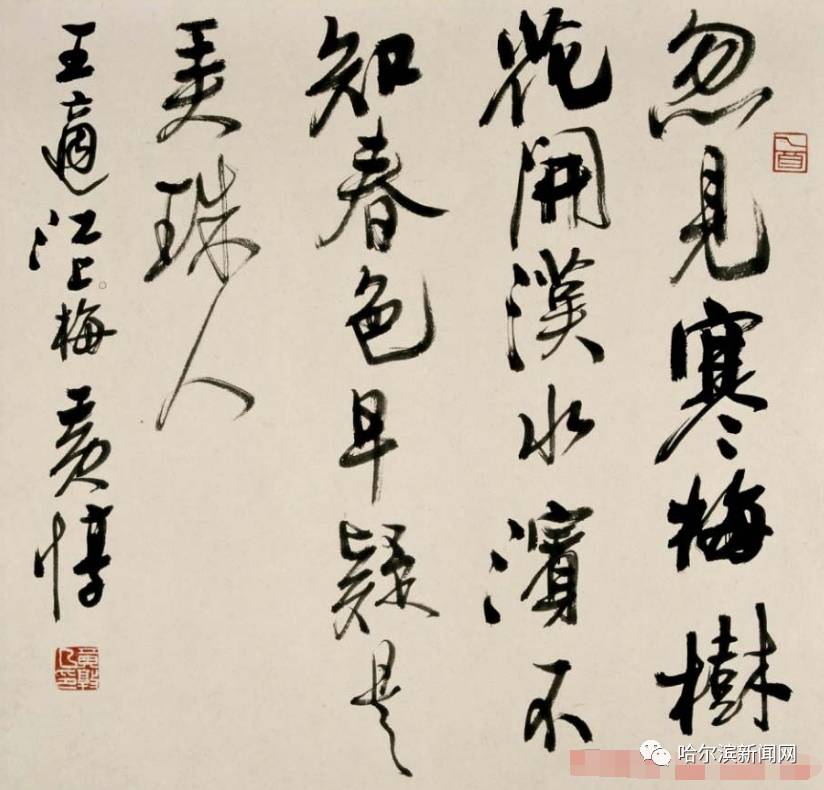 忽見寒梅樹
花開漢水濱不
知春色早疑是
弄珠人
王適江上梅 黄惇
哈尔滨新闻网